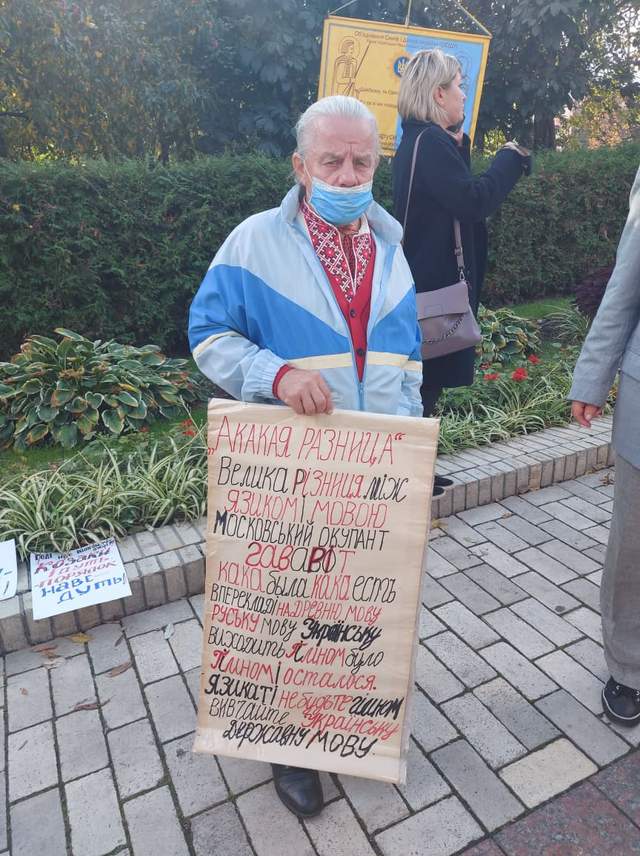 Об'єднання Скіфів і
„А КАКАЯ РАЗНИЦА“
ВЕЛИКА РІЗНИЦЯ МІЖ
ЯЗИКОМ І МОВОЮ
МОСКОВСЬКИЙ ОКУПАНТ
ГАВАРІТ
КАКА БЫЛА КАКА ЕСТЬ
В ПЕРЕКЛАДІ НА ДРЕВНЮ МОВУ
РУСЬКУ МОВУ УКРАЇНСЬКУ
ВИХОДИТЬ ГІМНОМ БУЛО
ГІМНОМ І ОСТАЛОСЯ.
ЯЗИКАТІ НЕ БУДЬТЕ ГІМНОМ
ВИВЧАЙТЕ УКРАЇНСЬКУ
ДЕРЖАВНУ МОВУ.
КОЗАКИ
ІДУТЬ
ПОРЯДОК
НАВЕ-
ДУТЬ!